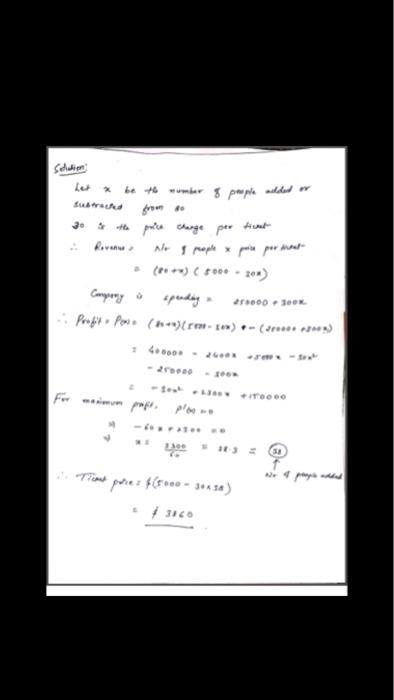 Solution:
Let x be the number of people added or
subtracted from 80
30 is the price change per ticket
∴ Revenue = No of people x price per ticket
= (80+x) (5000 - 30x)
Company is spending = 250000 + 300x
∴ Profit = P(x) = (80+x)(5000-30x) - (250000+300x)
= 400000 - 2400x + 5000x - 30x²
- 250000 - 300x
= -30x² + 2300x + 150000
For maximum profit, p'(x) = 0
⇒ -60x + 2300 = 0
⇒ x = 2300/60 = 38.3 ≈ 38
↑
No of people added
∴ Ticket price = $(5000 - 30x38)
= $ 3860